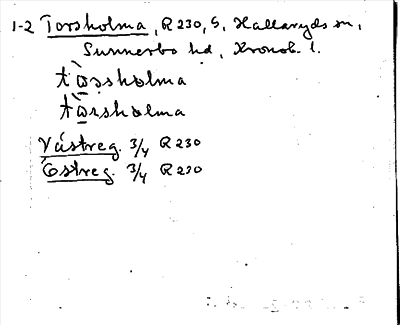 1-2 Torsholma, R 230, S. Hallaryds sn,
Sunnerbo hd, Kronob. l.
tòrsholma
tòrsholma
Västreg. 3/4 R 230
Östreg. 3/4 R 230